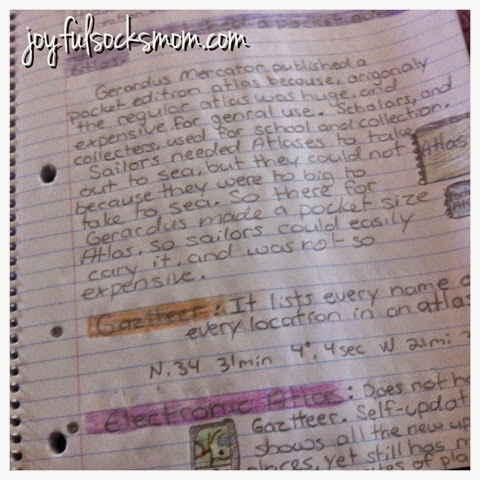 joyfulsocksmom.com
Atlas
Gerardus Mercator published a
pocket edition atlas because, origonaly
the regular atlas was huge, and
expensive for genral use. Scholars, and
collecters, used for school and collection.
Sailors needed Atlases to take
out to sea, but they could not
because they were to big to
take to sea. So there for
Gerardus made a pocket size
Atlas, so sailors could easily
cary it, and was not so
expensive.
Atlas
Gaztteer: It lists every name
every location in an atlas
N. 34 31min 4°, 4sec W 21mi
Electronic Atlas: Does not
Gaztteer. Self-updat
shows all the new up
places, yet still has
of pla